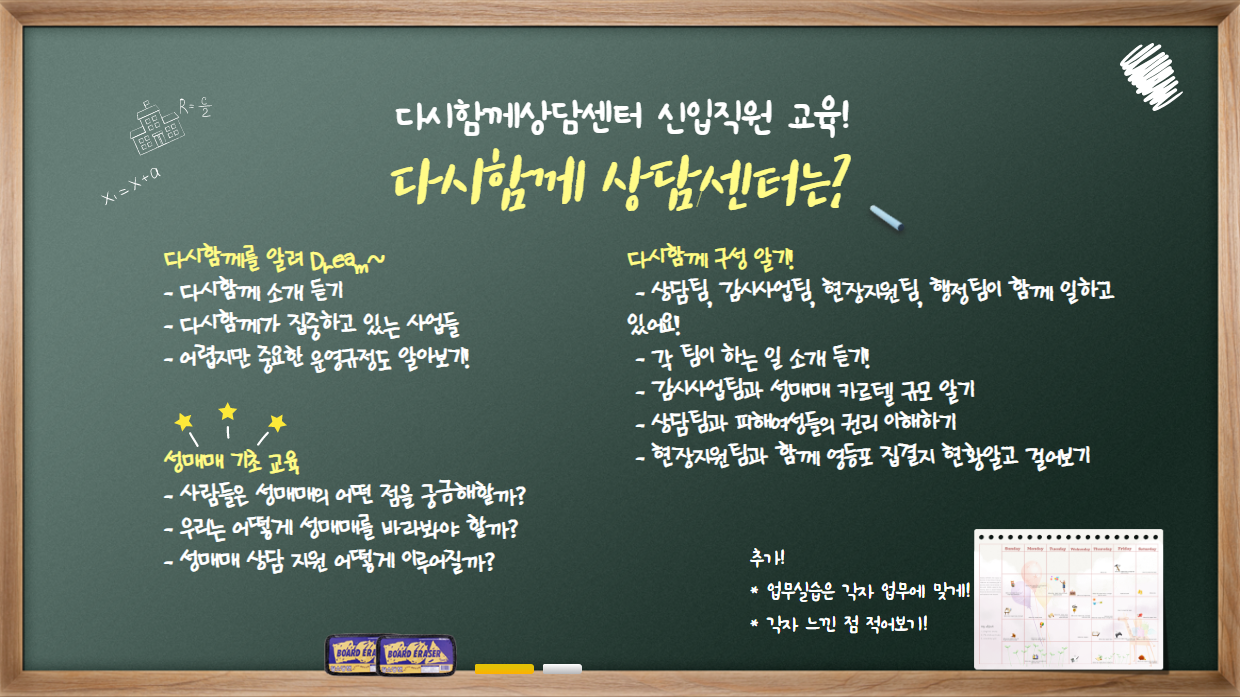 R = c/2
x₁ = x + a
다시함께상담센터 신입직원 교육!
다시함께 상담센터는?
다시함께를 알려 Dream~
- 다시함께 소개 듣기
- 다시함께가 집중하고 있는 사업들
- 어렵지만 중요한 운영규정도 알아보기!
성매매 기초 교육
- 사람들은 성매매의 어떤 점을 궁금해할까?
- 우리는 어떻게 성매매를 바라봐야 할까?
- 성매매 상담 지원 어떻게 이루어질까?
다시함께 구성 알기!
- 상담팀, 감시사업팀, 현장지원팀, 행정팀이 함께 일하고
있어요!
- 각 팀이 하는 일 소개 듣기!
- 감시사업팀과 성매매 카르텔 규모 알기
- 상담팀과 피해여성들의 권리 이해하기
- 현장지원팀과 함께 영등포 집결지 현황알고 걸어보기
추가!
* 업무실습은 각자 업무에 맞게!
* 각자 느낀 점 적어보기!
BOARD ERA
BOARD ERASER
Sunday Monday Tuesday Wednesday Thursday Friday Saturday